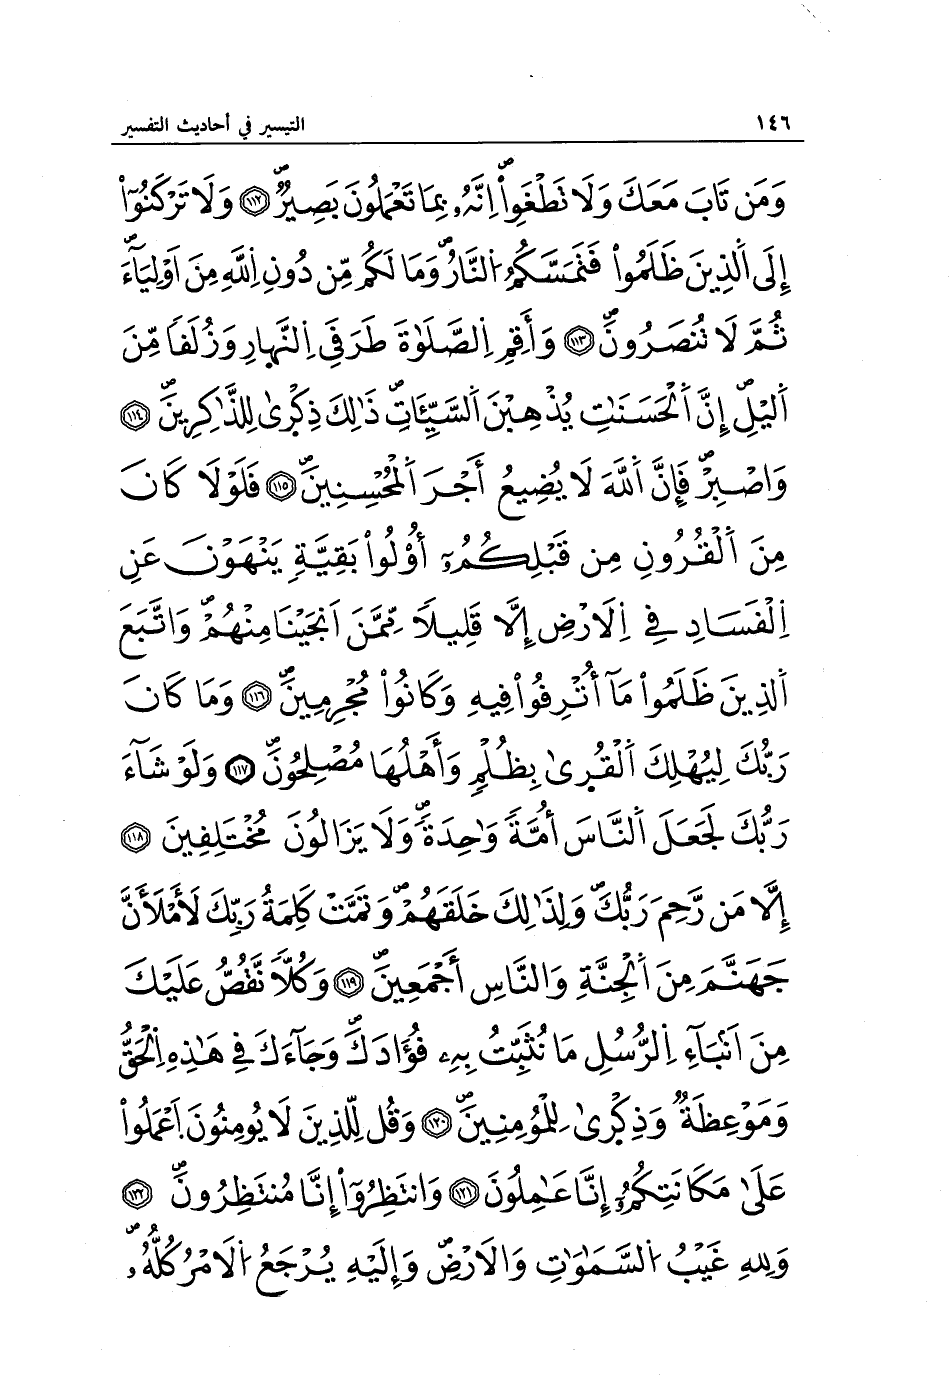 ١٤٦ التيسير في أحاديث التفسير
وَمَن تَابَ مَعَكَ وَلَا تَطْغَوِاْ اِنَّهُۥ بِمَا تَعْمَلُونَ بَصِيرٌ ١١٢ وَلَا تَرْكَنُوٓاْ
إِلَى اَلذِينَ ظَلَمُواْ فَتَمَسَّكُمُ اُلنَّارُ وَمَا لَكُم مِّن دُونِ اِللَّهِ مِنَ اَوْلِيَآءَ
ثُمَّ لَا تُنصَرُونَ ١١٣ وَأَقِمِ اِلصَّلَوٰةَ طَرَفَيِ اِلنَّهارِ وَزُلَفاً مِّنَ
اَليْلِ إِنَّ اَلْحَسَنَٰتِ يُذْهِبْنَ اَلسَّيِّئَاتِ ذَٰلِكَ ذِكْرىٰ لِلذَّٰكِرِينَ ١١٤
وَاصْبِرْ فَإِنَّ اَللَّهَ لَا يُضِيعُ أَجْرَ اَلْمُحْسِنِينَ ١١٥ فَلَوْلَا كَانَ
مِنَ اَلْقُرُونِ مِن قَبْلِكُمُۥٓ أُوْلُواْ بَقِيَّةٍ يَنْهَوْنَ عَنِ
اِلْفَسَادِ فِي اِلَارْضِ إِلَّا قَلِيلاً مِّمَّنَ اَنجَيْنَا مِنْهُمْ وَاتَّبَعَ
اَلذِينَ ظَلَمُواْ مَآ أُتْرِفُواْ فِيهِ وَكَانُواْ مُجْرِمِينَ ١١٦ وَمَا كَانَ
رَبُّكَ لِيُهْلِكَ اَلْقُرىٰ بِظُلْمٍ وَأَهْلُهَا مُصْلِحُونَ ١١٧ وَلَوْ شَآءَ
رَبُّكَ لَجَعَلَ اَلنَّاسَ أُمَّةً وَٰحِدَةً وَلَا يَزَالُونَ مُخْتَلِفِينَ ١١٨
إِلَّا مَن رَّحِمَ رَبُّكَ وَلِذَٰلِكَ خَلَقَهُمْ وَتَمَّتْ كَلِمَةُ رَبِّكَ لَأَمْلَأَنَّ
جَهَنَّمَ مِنَ اَلْجِنَّةِ وَالنَّاسِ أَجْمَعِينَ ١١٩ وَكُلّاً نَّقُصُّ عَلَيْكَ
مِنَ اَنْبَآءِ اِلرُّسُلِ مَا نُثَبِّتُ بِهِۦ فُؤَادَكَ وَجَآءَكَ فِي هَٰذِهِ اِلْحَقُّ
وَمَوْعِظَةٌ وَذِكْرىٰ لِلْمُومِنِينَ ١٢٠ وَقُل لِّلذِينَ لَا يُومِنُونَ اَعْمَلُواْ
عَلَىٰ مَكَانَتِكُمُۥٓ إِنَّا عَٰمِلُونَ ١٢١ وَانتَظِرُوٓاْ إِنَّا مُنتَظِرُونَ ١٢٢
وَلِلهِ غَيْبُ اُلسَّمَٰوَٰتِ وَالَارْضِ وَإِلَيْهِ يُرْجَعُ اُلَامْرُ كُلُّهُۥ